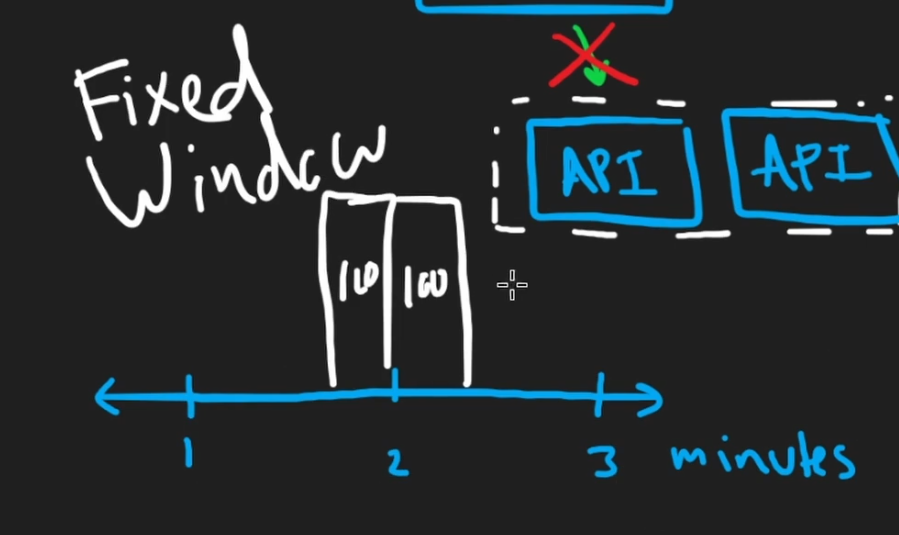 Fixed
Window
API
API
100
100
1
2
3
minutes